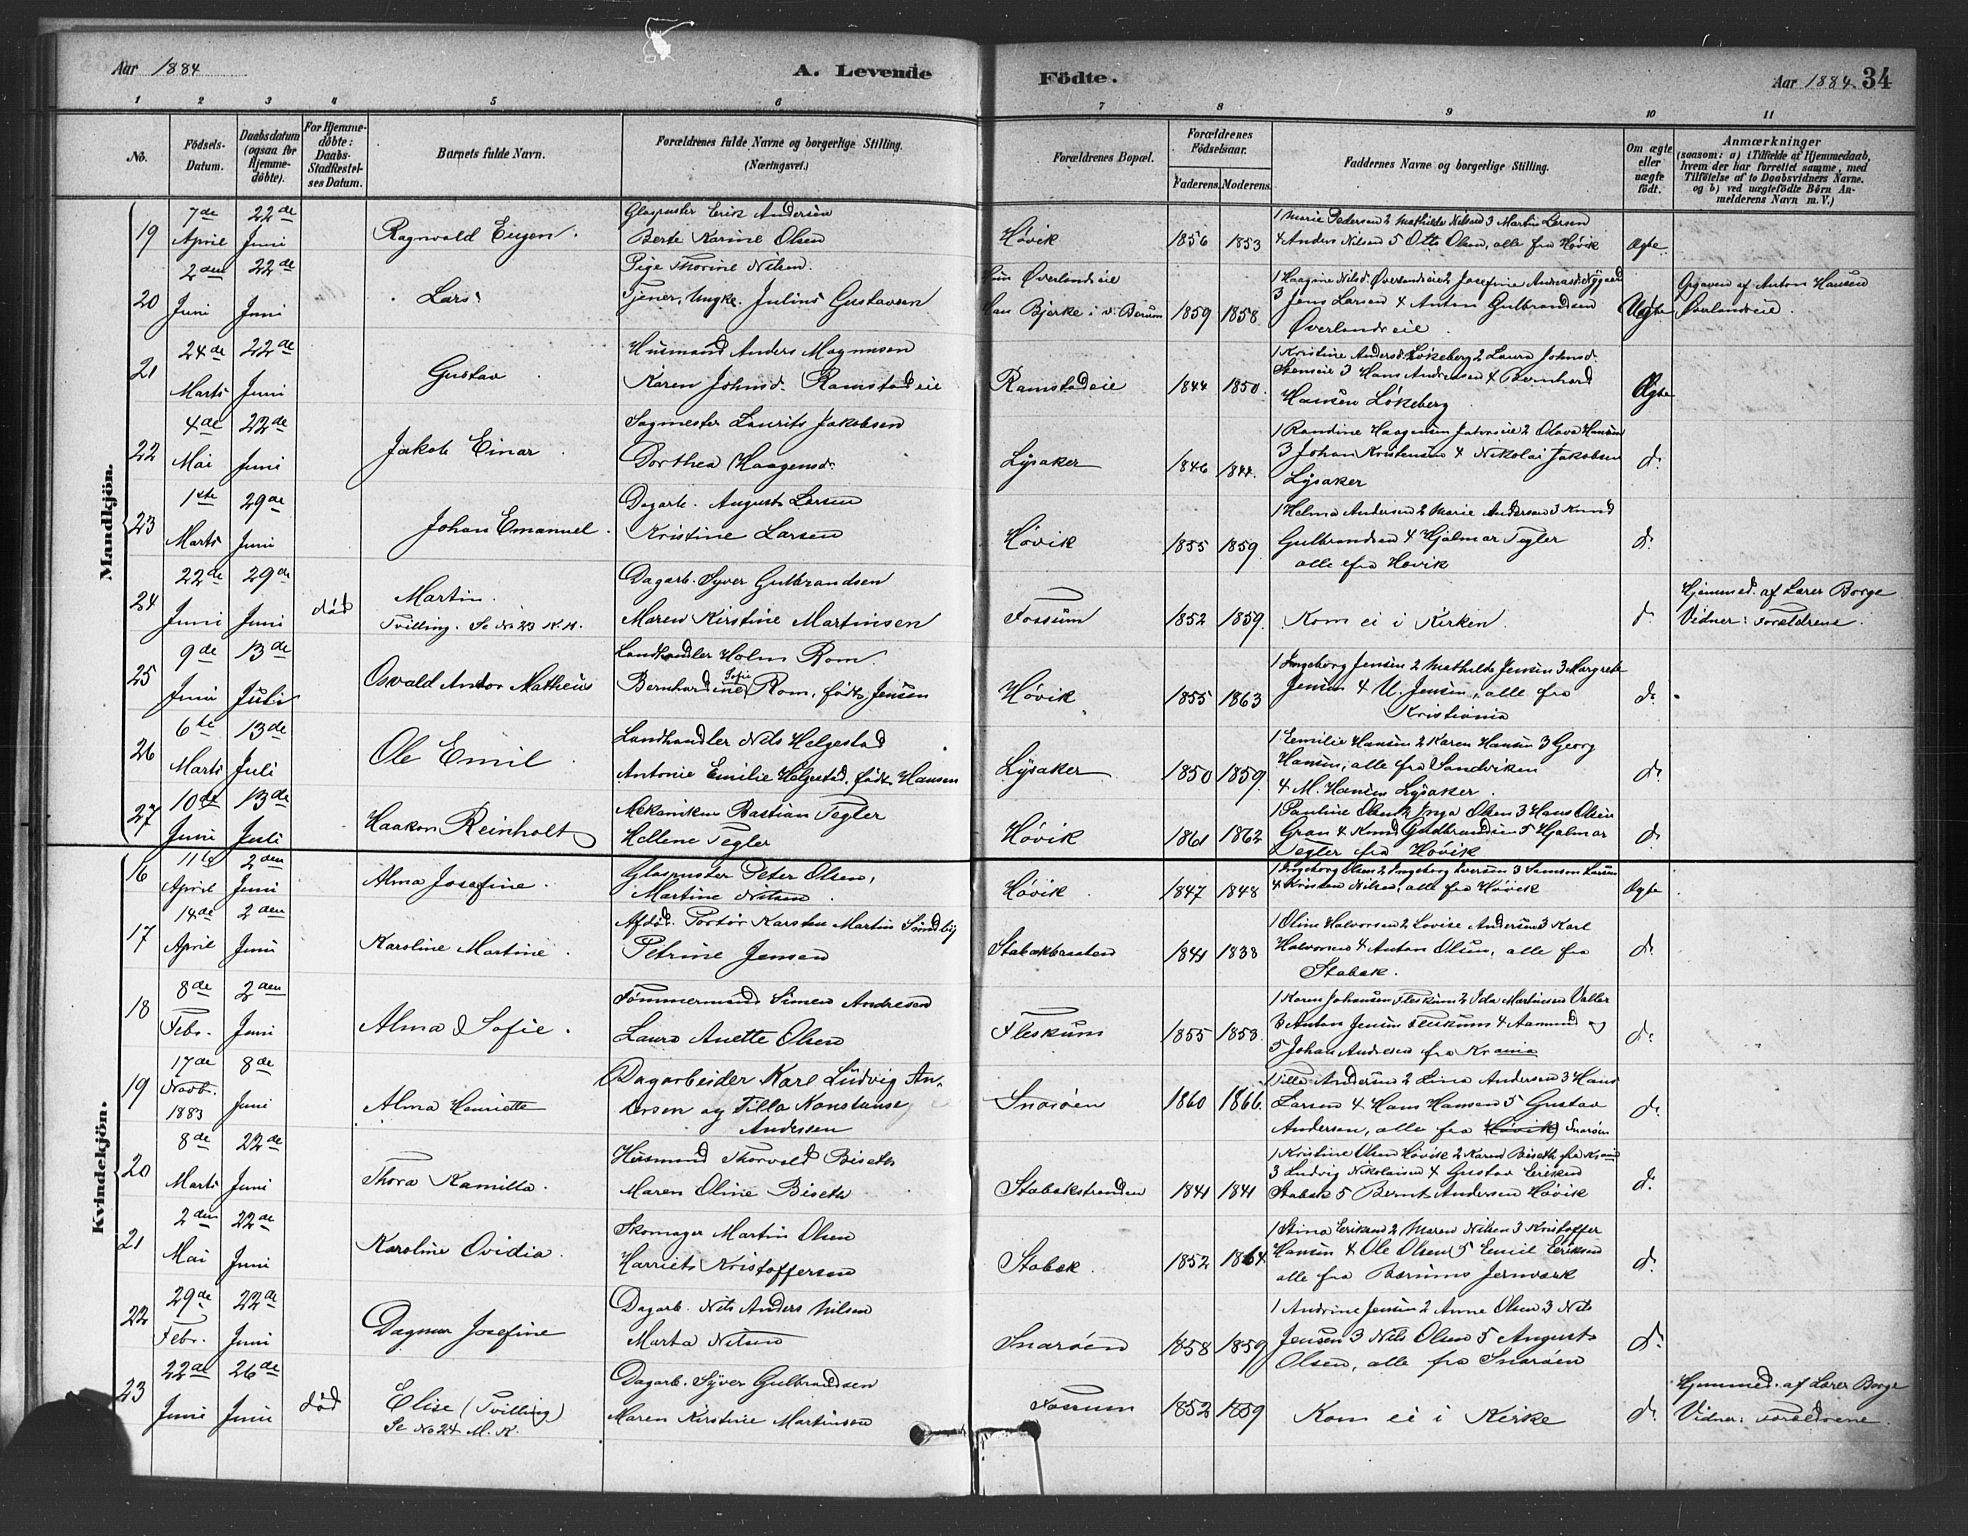 Aar 1884
A. Levende Födte.
Aar 1884. 34
1 2 3 4 5 6 7 8 9 10 11
No.
Födsels-Datum.
Daabsdatum (ogsaa for Hjemme-döbte).
For Hjemme-döbte: Daabs-Stadfæstel-ses Datum.
Barnets fulde Navn.
Forældrenes fulde Navne og borgerlige Stilling. (Næringsvei.)
Forældrenes Bopæl.
Forældrenes Födselsaar.
Faderens. Moderens.
Faddernes Navne og borgerlige Stilling.
Om ægte eller uægte født.
Anmærkninger
(saasom: a) i Tilfælde af Hjemmedaab, hvem der har forrettet samme, med Tilföielse af to Daabsvidners Navne. og b) ved uægtefödte Börn An-melderens Navn m. V.)
Mandkjön.
19 7de April 22de Juni Ragnvald Eugen.
Glaspuster Erik Andersen
Berte Karine Olsen
Høvik 1856 1853
1 Marie Pedersen 2 Mathilde Nilsen 3 Martin Larsen
4 Anders Nilsen 5 Otto Olsen, alle fra Høvik
Ægte
20 2den Juni 22de Juni Lars
Pige Thorine Nilsen.
Tjener, Ungk. Julius Gustavsen
Hun Øverlandeie
Han Bjerke i v. Bærum 1859 1858
1 Haagine Nilsd. Øverlandeie 2 Josefine Andreasd. Nygaard
3 Jens Larsen 4 Anton Gulbrandsen
Øverlandeie.
Uægte
Opgaven af Anton Hansen
Øverlandeie.
21 24de Marts 22de Juni Gustav
Husmand Anders Magnusen
Karen Johnsd. Ramstadeie
Ramstadeie 1844 1850.
1 Kristine Andersd. Løkeberg 2 Laura Johnsd.
Stenseie 3 Hans Andreasen 4 Bernhard
Hansen Løkeberg
Ægte
22 4de Mai 22de Juni Jakob Einar.
Sagmester Laurits Jakobsen
Dorthea Haagensd.
Lysaker 1846 1844.
1 Randine Haagensen 2 Olava Hansen
3 Johan Kristensen 4 Nikolai Jakobsen
Lysaker
do
23 1ste Marts 29de Juni Johan Emanuel.
Dagarb. August Larsen
Kristine Larsen
Høvik 1855 1859.
1 Helma Andersen 2 Marie Andersen 3 Knud
Gulbrandsen 4 Hjalmar Tegler
alle fra Høvik
do
24 22de Juni 29de Juni død Martin.
Tvilling. Se No 23 K.K.
Dagarb. Syver Gulbrandsen
Maren Kirstine Martinsen
Fossum 1852 1859.
Kom ei i Kirken.
do
Hjemmed. af Lærer Borge
Vidner: Forældrene.
25 9de Juni 13de Juli Osvald Antor Matheus
Landhandler Holm Rom.
Bernhardine Sofie Rom, født Jensen
Høvik 1855 1863
1 Ingeborg Jensen 2 Mathilde Jensen 3 Margrete
Jensen 4 U. Jensen, alle fra
Kristiania
do
26 6te Marts 13de Juli Ole Emil
Landhandler Nils Helgestad
Antonie Emilie Helgestad, født Hansen
Lysaker 1850 1859.
1 Emilie Hansen 2 Karen Hansen 3 Georg
Hansen, alle fra Sandviken
4 M. Hansen Lysaker.
do
27 10de Juni 13de Juli Haakon Reinholt
Mekaniker Bastian Tegler
Hellene Tegler
Høvik 1861 1862
1 Pauline Olsen 2 Inga Olsen 3 Hans Olsen
Gran 4 Knud Guldbrandsen 5 Hjalmar
Tegler fra Høvik
do
Kvindekjön.
16 11te April 2den Juni Alma Josefine.
Glaspuster Peter Olsen,
Martine Nilsen.
Høvik 1847 1848
1 Ingeborg Olsen 2 Ingeborg Iversen 3 Samson Larsen
4 Kristen Nilsen, alle fra Høvik
Ægte
17 14de April 2den Juni Karoline Martine.
Afdød. Karsten Martin Sundby
Petrine Jensen
Stabækbraaten 1841 1838
1 Oline Halvorsen 2 Lovise Andersen 3 Karl
Halvorsen 4 Anton Olsen, alle fra
Stabæk.
do
18 8de Febr. 2den Juni Alma Sofie.
Tømmermand Simen Andresen
Laura Anette Olsen
Fleskum 1855 1853.
1 Karen Johansen Fleskum 2 Ida Martinsen Valler
3 Anton Jensen Fleskum 4 Aamund og
5 Johan Andresen fra Krania
do
19 17de Novbr. 1883 8de Juni Alma Henriette
Dagarbeider Karl Ludvig An-
dersen og Tilla Konstanse
Andersen
Snarøen 1860 1866.
1 Tilla Andersen 2 Lina Andersen 3 Hans
Larsen 4 Hans Hansen 5 Gustav
Andersen, alle fra Høvik Snarøen
do
20 8de Marts 22de Juni Thora Kamilla.
Husmand Thorvald Biseth
Maren Oline Biseth
Stabækstranden 1841 1841
1 Kristine Olsen Høvik 2 Karen Biseth fra Krania
3 Ludvig Nikolaisen 4 Gustav Eriksen
Stabæk 5 Bernt Andersen Høvik
do
21 2den Mai 22de Juni Karoline Ovidia.
Skomager Martin Olsen
Harriet Kristoffersen
Stabæk. 1852 1864
1 Stina Eriksen 2 Maren Nilsen 3 Kristoffer
Hansen 4 Ole Olsen 5 Emil Eriksen
alle fra Bærums Jernværk
do
22 29de Febr. 22de Juni Dagmar Josefine
Dagarb. Nils Anders Nilsen
Marta Nilsen
Snarøen 1858 1859
1 Andrine Jensen 2 Anne Olsen 3 Nils
Jensen 3 Nils Olsen 5 August
Olsen, alle fra Snarøen
do
23 22de Juni 26de Juni død Elise (Tvilling)
Se No 24 M.K.
Dagarb. Syver Gulbrandsen
Maren Kirstine Martinsen
Fossum 1852 1859
Kom ei i Kirke
do
Hjemmed. af Lærer Borge
Vidner: Forældrene.